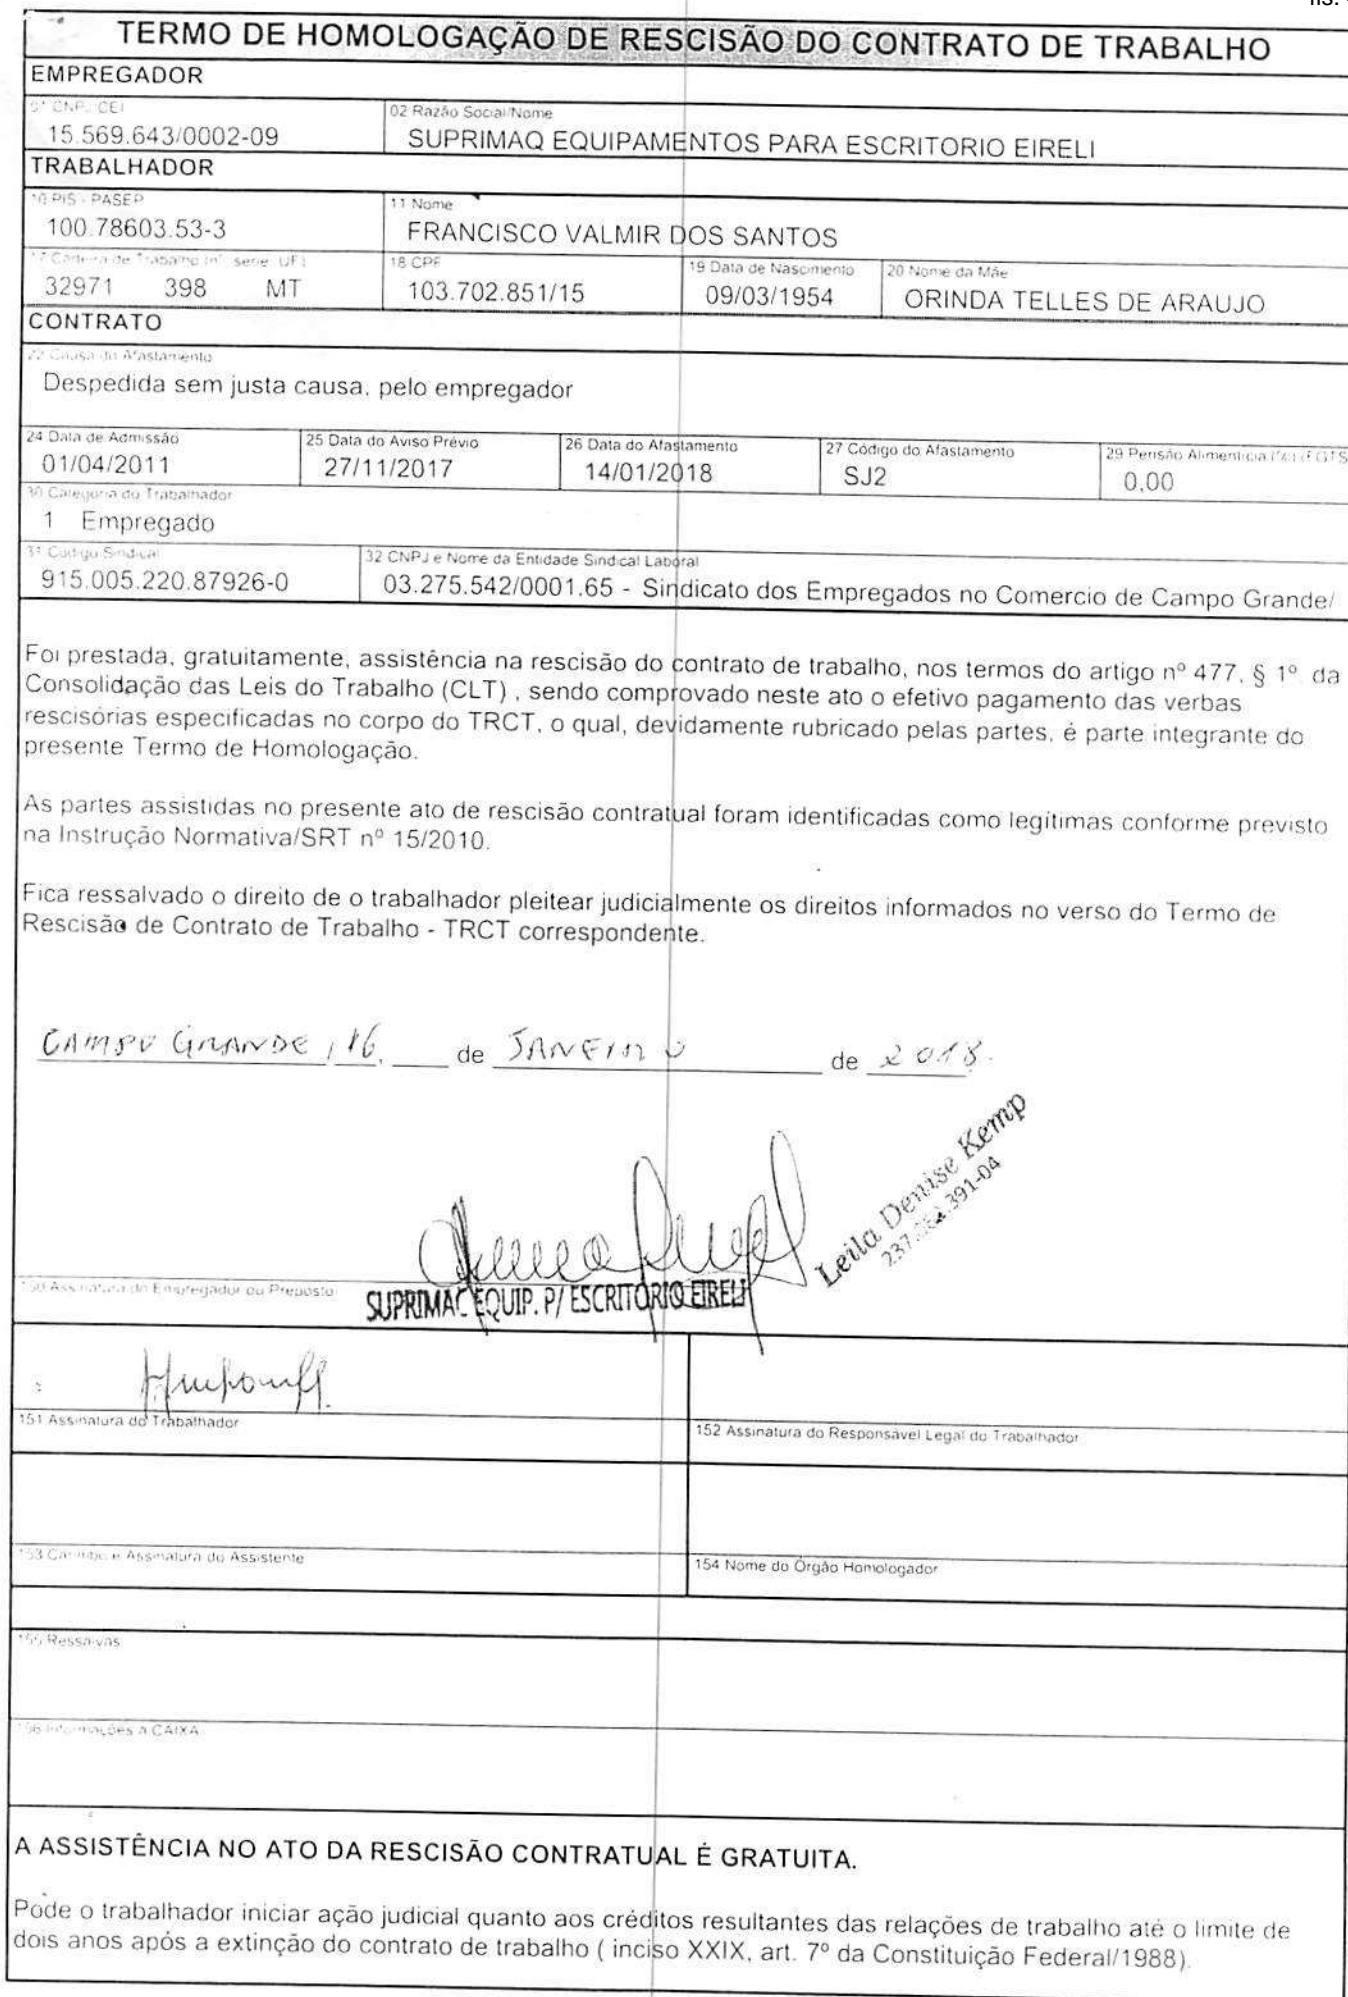 fls.
TERMO DE HOMOLOGAÇÃO DE RESCISÃO DO CONTRATO DE TRABALHO
EMPREGADOR
01 CNPJ/CEI
02 Razão Social/Nome
15.569.643/0002-09
SUPRIMAQ EQUIPAMENTOS PARA ESCRITORIO EIRELI
TRABALHADOR
10 PIS - PASEP
11 Nome
100.78603.53-3
FRANCISCO VALMIR DOS SANTOS
17 Carteira de Trabalho (nº, série, UF)
18 CPF
19 Data de Nascimento
20 Nome da Mãe
32971 398 MT
103.702.851/15
09/03/1954
ORINDA TELLES DE ARAUJO
CONTRATO
22 Causa do Afastamento
Despedida sem justa causa, pelo empregador
24 Data de Admissão
25 Data do Aviso Prévio
26 Data do Afastamento
27 Código do Afastamento
29 Pensão Alimentícia (%) (FGTS
01/04/2011
27/11/2017
14/01/2018
SJ2
0,00
30 Categoria do Trabalhador
1 Empregado
31 Código Sindical
32 CNPJ e Nome da Entidade Sindical Laboral
915.005.220.87926-0
03.275.542/0001.65 - Sindicato dos Empregados no Comercio de Campo Grande/
Foi prestada, gratuitamente, assistência na rescisão do contrato de trabalho, nos termos do artigo nº 477, § 1º, da
Consolidação das Leis do Trabalho (CLT) , sendo comprovado neste ato o efetivo pagamento das verbas
rescisórias especificadas no corpo do TRCT, o qual, devidamente rubricado pelas partes, é parte integrante do
presente Termo de Homologação.
As partes assistidas no presente ato de rescisão contratual foram identificadas como legítimas conforme previsto
na Instrução Normativa/SRT nº 15/2010.
Fica ressalvado o direito de o trabalhador pleitear judicialmente os direitos informados no verso do Termo de
Rescisão de Contrato de Trabalho - TRCT correspondente.
CAMPO GRANDE, 16. de JANEIRO de 2018.
Leila Denise Kemp
391-04
150 Assinatura do Empregador ou Preposto
SUPRIMAC EQUIP. P/ ESCRITÓRIO EIRELI
151 Assinatura do Trabalhador
152 Assinatura do Responsável Legal do Trabalhador
153 Carimbo e Assinatura do Assistente
154 Nome do Órgão Homologador
155 Ressalvas
156 Informações à CAIXA
A ASSISTÊNCIA NO ATO DA RESCISÃO CONTRATUAL É GRATUITA.
Pode o trabalhador iniciar ação judicial quanto aos créditos resultantes das relações de trabalho até o limite de
dois anos após a extinção do contrato de trabalho ( inciso XXIX, art. 7º da Constituição Federal/1988).